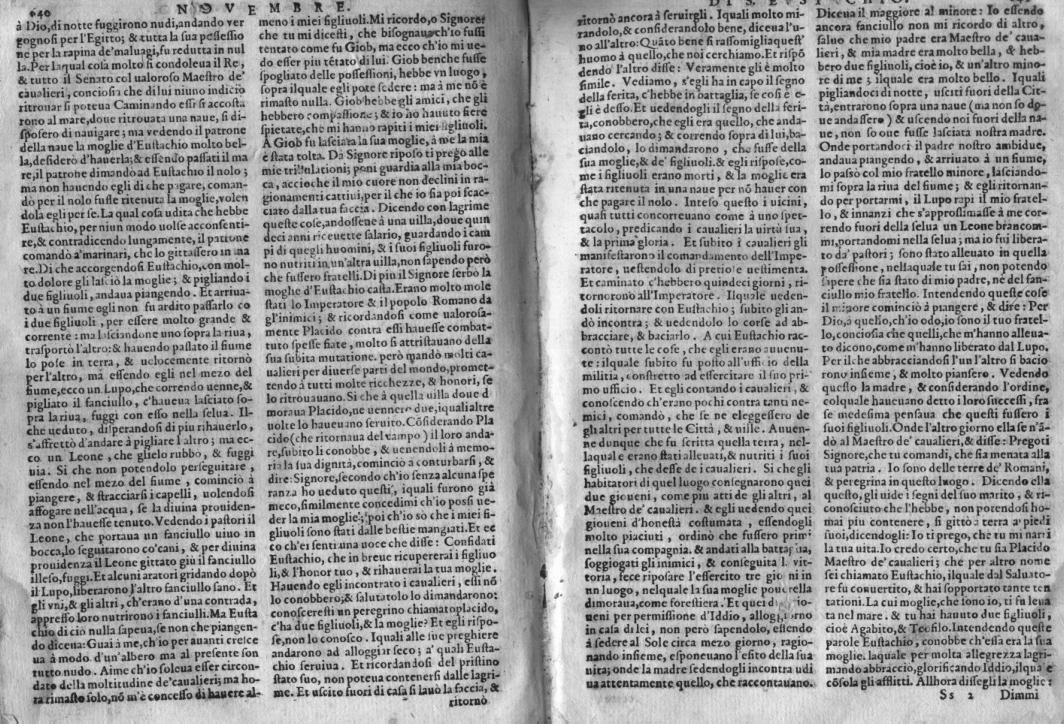 640
NOVEMBRE.
à Dio, di notte fuggirono nudi, andando ver
gognosi per l'Egitto; & tutta la sua possessio
ne per la rapina de'maluagi, fu redutta in nul
la. Per laqual cosa molto si condoleua il Re,
& tutto il Senato col ualoroso Maestro de'
caualieri, conciosia che di lui niuno indicio
ritrouar si poteua Caminando essi si accosta
rono al mare, doue ritrouata una naue, si di-
sposero di nauigare; ma vedendo il patrone
della naue la moglie d'Eustachio molto bel-
la, desiderò d'hauerla; & essendo passati il ma
re, il patrone dimandò ad Eustachio il nolo;
ma non hauendo egli di che pagare, coman-
dò per il nolo fusse ritenuta la moglie, volen
dola egli per se. La qual cosa udita che hebbe
Eustachio, per niun modo uolse acconsenti-
re, & contradicendo lungamente, il patrone
comandò a'marinari, che lo gittassero in ma
re. Di che accorgendosi Eustachio, con mol-
to dolore gli lasciò la moglie; & pigliando i
due figliuoli, andaua piangendo. Et arriua-
to à un fiume egli non fu ardito passarlo co
i due figliuoli, per essere molto grande &
corrente: ma lasciandone uno sopra la riua,
trasportò l'altro: & hauendo passato il fiume
lo pose in terra, & uelocemente ritornò
per l'altro, mà essendo egli nel mezo del
fiume, ecco un Lupo, che correndo uenne, &
pigliato il fanciullo, c'haueua lasciato so-
pra la riua, fuggì con esso nella selua. Il-
che ueduto, disperandosi di piu rihauerlo,
s'affrettò d'andare à pigliare l'altro; ma ec-
co un Leone, che glielo rubbò, & fuggì
uia. Si che non potendolo perseguitare,
essendo nel mezo del fiume, cominciò à
piangere, & stracciarsi i capelli, uolendosi
affogare nell'acqua, se la diuina prouiden-
za non l'hauesse tenuto. Vedendo i pastori il
Leone, che portaua un fanciullo uiuo in
bocca, lo seguitarono co'cani, & per diuina
prouidenza il Leone gittato giù il fanciullo
illeso, fuggì. Et alcuni aratori gridando dopò
il Lupo, liberarono l'altro fanciullo sano. Et
gli vni, & gli altri, ch'erano d'una contrada,
appresso loro nutrirono i fanciulli. Ma Eusta
chio di ciò nulla sapeua, se non che piangen-
do diceua: Guai à me, ch'io per auanti cresce
ua à modo d'un'albero ma al presente son
tutto nudo. Aime ch'io soleua esser circon-
dato della moltitudine de'caualieri; ma ho-
ra rimasto solo, nō m'è concesso di hauere al-
meno i miei figliuoli. Mi ricordo, ò Signore
che tu mi dicesti, che bisognaua ch'io fussi
tentato come fu Giob, ma ecco ch'io mi ue-
do esser piu tētato di lui. Giob benche fusse
spogliato delle possessioni, hebbe vn luogo,
sopra ilquale egli pote sedere: ma à me nō è
rimasto nulla. Giob hebbe gli amici, che gli
hebbero compassione; & io ho hauuto fiere
spietate, che mi hanno rapiti i miei figliuoli.
A Giob fu lasciata la sua moglie, à me la mia
è stata tolta. Dà Signore riposo ti prego alle
mie tribulationi; poni guardia alla mia boc-
ca, accioche il mio cuore non declini in ra-
gionamenti cattiui, per il che io sia poi scac-
ciato dalla tua faccia. Dicendo con lagrime
queste cose, andossene à una uilla, doue quin
deci anni riceuette salario, guardando i cam
pi di quegli huomini, & i suoi figliuoli furo-
no nutriti in un'altra uilla, non sapendo però
che fussero fratelli. Di piu il Signore serbò la
moglie d'Eustachio casta. Erano molto mole
stati lo Imperatore & il popolo Romano da
gl'inimici; & ricordandosi come ualorosa-
mente Placido contra essi hauesse combat-
tuto spesse fiate, molto si attristauano della
sua subita mutatione. però mandò molti ca-
ualieri per diuerse parti del mondo, promet-
tendo à tutti molte ricchezze, & honori, se
lo ritrouauano. Si che à quella uilla doue di
moraua Placido, ne uennero due, iquali altre
uolte lo haueuano seruito. Cōsiderando Pla
cido (che ritornaua del campo) il loro anda-
re, subito li conobbe, & uenendoli à memo-
ria la sua dignità, cominciò à conturbarsi, &
dire: Signore, secondo ch'io senza alcuna spe
ranza ho ueduto questi, iquali furono già
meco, similmente concedimi ch'io possi ue-
der la mia moglie; poi ch'io sò che i miei fi-
gliuoli sono stati dalle bestie mangiati. Et ec
co ch'ei sentì una uoce che disse: Confidati
Eustachio, che in breue ricupererai i figliuo
li, & l'honor tuo, & rihauerai la tua moglie.
Hauendo egli incontrato i caualieri, essi nō
lo conobbero; & salutatolo lo dimandarono:
conosceresti un peregrino chiamato placido,
c'ha due figliuoli, & la moglie? Et egli rispo-
se, non lo conosco. Iquali alle sue preghiere
andarono ad alloggiar seco; a' quali Eusta-
chio seruiua. Et ricordandosi del pristino
stato suo, non poteua contenersi dalle lagri-
me. Et uscito fuori di casa si lauò la faccia, &
ritornò
DI S. EUSTACHIO.
ritornò ancora à seruirgli. Iquali molto mi-
randolo, & considerandolo bene, diceua l'u-
no all'altro: Quāto bene si rassomiglia quest'
huomo à quello, che noi cerchiamo. Et rispō
dendo l'altro disse: Veramente gli è molto
simile. Vediamo, s'egli ha in capo il segno
della ferita, c'hebbe in battaglia, se così è e-
gli è desso. Et uedendogli il segno della feri-
ta, conobbero, che egli era quello, che anda-
uano cercando; & correndo sopra di lui, ba-
ciandolo, lo dimandarono, che fusse della
sua moglie, & de' figliuoli. & egli rispose, co-
me i figliuoli erano morti, & la moglie era
stata ritenuta in una naue per nō hauer con
che pagare il nolo. Inteso questo i uicini,
quasi tutti concorreuano come à uno spet-
tacolo, predicando i caualieri la uirtù sua,
& la prima gloria. Et subito i caualieri gli
manifestarono il comandamento dell'Impe-
ratore, uestendolo di pretiose uestimenta.
Et caminato c'hebbero quindeci giorni, ri-
tornorono all'Imperatore. Ilquale ueden-
doli ritornare con Eustachio; subito gli an-
dò incontra; & uedendolo lo corse ad ab-
bracciare, & baciarlo. A cui Eustachio rac-
contò tutte le cose, che egli erano auuenu-
te: ilquale subito fu posto all'ufficio della
militia, constretto ad essercitare il suo pri-
mo ufficio. Et egli contando i caualieri, &
conoscendo ch'erano pochi contra tanti ne-
mici, comando, che se ne eleggessero de
gli altri per tutte le Città, & uille. Auuen-
ne dunque che fu scritta quella terra, nel-
laquale erano stati alleuati, & nutriti i suoi
figliuoli, che desse de i caualieri. Si che gli
habitatori di quel luogo consegnarono quei
due gioueni, come piu atti de gli altri, al
Maestro de' caualieri. & egli uedendo quei
gioueni d'honestà costumata, essendogli
molto piaciuti, ordinò che fussero primi
nella sua compagnia. & andati alla battaglia,
soggiogati gli inimici, & conseguita la vit-
toria, fece riposare l'essercito tre giorni in
un luogo, nelquale la sua moglie pouerella
dimoraua, come forestiera. Et quei due gioue-
ni per permissione d'Iddio, alloggiorno
in casa di lei, non però sapendolo, essendo
à sedere al Sole circa mezo giorno, ragio-
nando insieme, esponeuano l'esito della sua
uita; onde la madre sedendogli incontra udi
ua attentamente quello, che raccontauano.
Diceua il maggiore al minore: Io essendo
ancora fanciullo non mi ricordo di altro,
saluo che mio padre era Maestro de' caua-
lieri, & mia madre era molto bella, & heb-
bero due figliuoli, cioè io, & un'altro mino-
re di me; ilquale era molto bello. Iquali
pigliandoci di notte, usciti fuori della Cit-
tà, entrarono sopra una naue (ma non so do-
ue andassero) & uscendo noi fuori della na-
ue, non so oue fusse lasciata nostra madre.
Onde portandoci il padre nostro ambidue,
andaua piangendo, & arriuato à un fiume,
lo passò col mio fratello minore, lasciando-
mi sopra la riua del fiume; & egli ritornan-
do per portarmi, il Lupo rapì il mio fratel-
lo, & innanzi che s'approssimasse à me cor-
rendo fuori della selua un Leone brancom-
mi, portandomi nella selua; ma io fui libera-
to da' pastori; sono stato alleuato in quella
possessione, nellaquale tu sai, non potendo
sapere che sia stato di mio padre, ne del fan-
ciullo mio fratello. Intendendo queste cose
il minore cominciò à piangere, & dire: Per
Dio, a quello, ch'io odo, io sono il tuo fratel-
lo, conciosia che quelli, che m'hanno alleua-
to dicono, come m'hanno liberato dal Lupo.
Per il che abbracciandosi l'un l'altro si bacio
rono insieme, & molto piansero. Vedendo
questo la madre, & considerando l'ordine,
colquale haueuano detto i loro successi, fra
se medesima pensaua che questi fussero i
suoi figliuoli. Onde l'altro giorno ella se n'ā-
dò al Maestro de' caualieri, & disse: Pregoti
Signore, che tu comandi, che sia menata alla
tua patria. Io sono delle terre de' Romani,
& peregrina in questo luogo. Dicendo ella
questo, gli uide i segni del suo marito, & ri-
conosciuto che l'hebbe, non potendosi ho-
mai piu contenere, si gittò a terra a' piedi
suoi, dicendogli: Io ti prego, che tu mi narri
la tua uita. Io credo certo, che tu sia Placido
Maestro de' caualieri; che per altro nome
sei chiamato Eustachio, ilquale dal Saluato-
re fu conuertito, & hai sopportato tante ten
tationi. La cui moglie, che iono io, ti fu leua
ta nel mare. & tu hai hauuto due figliuoli,
cioè Agabito, & Teofilo. Intendendo queste
parole Eustachio, conobbe ch'essa era la sua
moglie. laquale per molta allegrezza lagri-
mando abbracciò, glorificando Iddio, ilqua e
cōsola gli afflitti. Allhora dissegli la moglie:
Ss 2 Dimmi